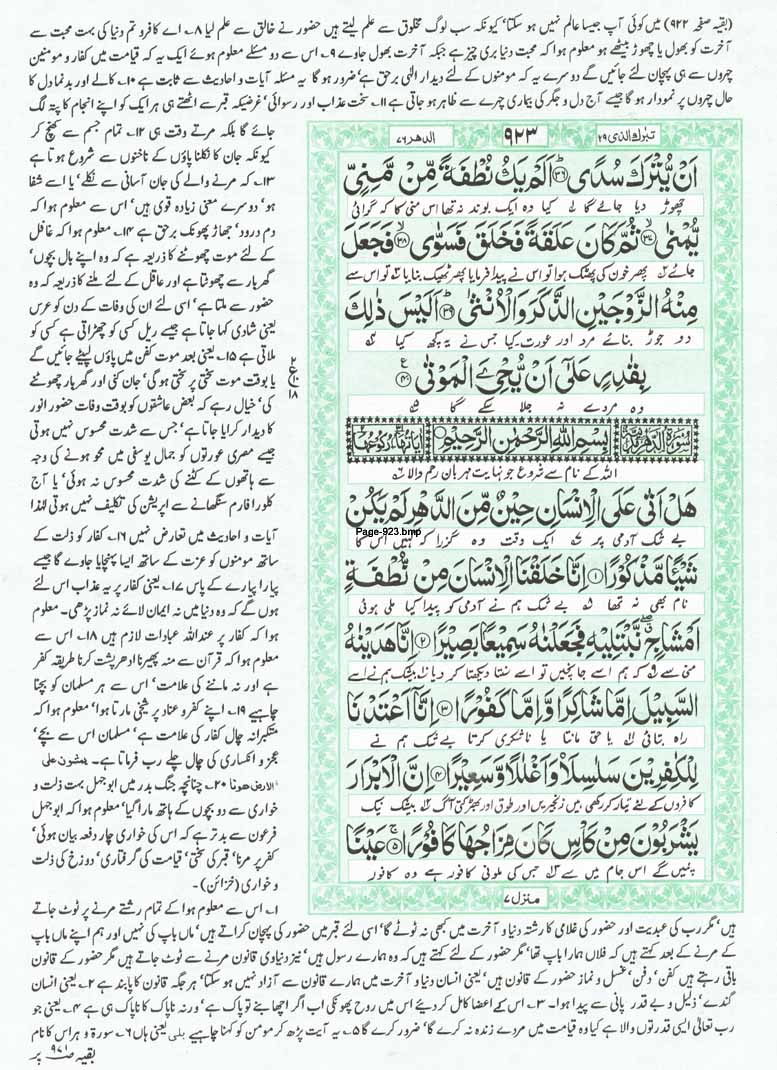 (بقیہ صفحہ ۹۲۲) میں کوئی آپ جیسا عالم نہیں ہو سکتا' کیونکہ سب لوگ مخلوق سے علم لیتے ہیں حضور نے خالق سے علم لیا ۸۔ اے کافرو تم دنیا کی بہت محبت سے
آخرت کو بھول یا چھوڑ بیٹھے ہو معلوم ہوا کہ محبت دنیا بری چیز ہے جبکہ آخرت بھول جاوے ۹۔ اس سے دو مسئلے معلوم ہوئے ایک یہ کہ قیامت میں کفار و مومنین
چہروں سے ہی پہچان لئے جائیں گے دوسرے یہ کہ مومنوں کے لئے دیدار الٰہی برحق ہے' ضرور ہو گا یہ مسئلہ آیات و احادیث سے ثابت ہے ۱۰۔ کالے اور بدنما دل کا
حال چہروں پر نمودار ہو گا جیسے آج دل و جگر کی بیماری چہرے سے ظاہر ہو جاتی ہے ۱۱۔ سخت عذاب اور رسوائی' غرضیکہ قبر سے اٹھتے ہی ہر ایک کو اپنے انجام کا پتہ لگ
جائے گا بلکہ مرتے وقت ہی ۱۲۔ تمام جسم سے کھچ کر
کیونکہ جان کا نکلنا پاؤں کے ناخنوں سے شروع ہوتا ہے
۱۳۔ کہ مرنے والے کی جان آسانی سے نکلے' یا اسے شفا
ہو' دوسرے معنی زیادہ قوی ہیں' اس سے معلوم ہوا کہ
دم درود' جھاڑ پھونک برحق ہے ۱۴۔ معلوم ہوا کہ غافل
کے لئے موت چھوٹنے کا ذریعہ ہے کہ وہ اپنے بال بچوں'
گھربار سے چھوٹتا ہے اور عاقل کے لئے ملنے کا ذریعہ کہ وہ
حضور سے ملتا ہے' اسی لئے ان کی وفات کے دن کو عرس
یعنی شادی کہا جاتا ہے جیسے ریل کسی کو چھڑاتی ہے کسی کو
ملاتی ہے ۱۵۔ یعنی بعد موت کفن میں پاؤں لپیٹے جائیں گے
یا بوقت موت سختی پر سختی ہو گی' جان کنی اور گھربار چھوٹنے
کی' خیال رہے کہ بعض عاشقوں کو بوقت وفات حضور انور
کا دیدار کرایا جاتا ہے' جس سے شدت محسوس نہیں ہوتی
جیسے مصری عورتوں کو جمال یوسفی میں محو ہونے کی وجہ
سے ہاتھوں کے کٹنے کی شدت محسوس نہ ہوئی' یا آج
کلورا فارم سنگھانے سے اپریشن کی تکلیف نہیں ہوتی لہٰذا
آیات و احادیث میں تعارض نہیں ۱۶۔ کفار کو ذلت کے
ساتھ مومنوں کو عزت کے ساتھ ایسا پہنچایا جاوے گا جیسے
پیارا پیارے کے پاس ۱۷۔ یعنی کفار پر یہ عذاب اس لئے
ہوں گے کہ وہ دنیا میں نہ ایمان لائے نہ نماز پڑھی۔ معلوم
ہوا کہ کفار پر عنداللہ عبادات لازم ہیں ۱۸۔ اس سے
معلوم ہوا کہ قرآن سے منہ پھیرنا ادھر پشت کرنا طریقہ کفر
ہے اور نہ ماننے کی علامت' اس سے ہر مسلمان کو بچنا
چاہیے ۱۹۔ اپنے کفر و عناد پر شیخی مارتا ہوا' معلوم ہوا کہ
متکبرانہ چال کفار کی علامت ہے' مسلمان اس سے بچے'
عجز و انکساری کی چال چلے رب فرماتا ہے۔ یمشون علی
الارض ھونا ۲۰۔ چنانچہ جنگ بدر میں ابوجہل بہت ذلت و
خواری سے دو بچوں کے ہاتھ مارا گیا' معلوم ہوا کہ ابوجہل
فرعون سے بدتر ہے کہ اس کی خواری چار دفعہ بیان ہوئی'
کفر پر مرنا' قبر کی سختی' قیامت کی گرفتاری' دوزخ کی ذلت
و خواری (خزائن)۔
تبٰرک الذی ۲۹
۹۲۳
الدھر ۷۶
اَنْ یُّتْرَكَ سُدًى ﴿۳۶﴾ اَلَمْ یَكُ نُطْفَةً مِّنْ مَّنِیٍّ
چھوڑ دیا جائے گا کیا وہ ایک بوند نہ تھا اس منی کا کہ گرائی
یُّمْنٰى ﴿۳۷﴾ ثُمَّ كَانَ عَلَقَةً فَخَلَقَ فَسَوّٰى ﴿۳۸﴾ فَجَعَلَ
جائے پھر خون کی پھٹک ہوا تو اس نے پیدا فرمایا پھر ٹھیک بنایا تو اس سے
مِنْهُ الزَّوْجَیْنِ الذَّكَرَ وَالْاُنْثٰى ﴿۳۹﴾ اَلَیْسَ ذٰلِكَ
دو جوڑ بنائے مرد اور عورت کیا جس نے یہ کچھ کیا
بِقٰدِرٍ عَلٰۤى اَنْ یُّحْیِۧ الْمَوْتٰى ﴿۴۰﴾
وہ مردے نہ جلا سکے گا
۲
ع
۱۰
۱۸
سورۃ الدھر
بِسْمِ اللهِ الرَّحْمٰنِ الرَّحِیْمِ
اللہ کے نام سے شروع جو نہایت مہربان رحم والا
هَلْ اَتٰى عَلَى الْاِنْسَانِ حِیْنٌ مِّنَ الدَّهْرِ لَمْ یَكُنْ
Page-923.bmp
بے شک آدمی پر ایک وقت وہ گزرا کہ کہیں اس کا
شَیْــٴًـا مَّذْكُوْرًا ﴿۱﴾ اِنَّا خَلَقْنَا الْاِنْسَانَ مِنْ نُّطْفَةٍ
نام بھی نہ تھا بے شک ہم نے آدمی کو پیدا کیا ملی ہوئی
اَمْشَاجٍ نَّبْتَلِیْهِ فَجَعَلْنٰهُ سَمِیْعًۢا بَصِیْرًا ﴿۲﴾ اِنَّا هَدَیْنٰهُ
منی سے کہ ہم اسے جانچیں تو اسے سنتا دیکھتا کر دیا بیشک ہم نے اسے
السَّبِیْلَ اِمَّا شَاكِرًا وَّاِمَّا كَفُوْرًا ﴿۳﴾ اِنَّاۤ اَعْتَدْنَا
راہ بتائی یا حق مانتا یا ناشکری کرتا بے شک ہم نے
لِلْكٰفِرِیْنَ سَلٰسِلَاۡ وَاَغْلٰلًا وَّسَعِیْرًا ﴿۴﴾ اِنَّ الْاَبْرَارَ
کافروں کے لئے تیار کر رکھی ہیں زنجیریں اور طوق اور بھڑکتی آگ بیشک نیک
یَشْرَبُوْنَ مِنْ كَاْسٍ كَانَ مِزَاجُهَا كَافُوْرًا ﴿۵﴾ عَیْنًا
پئیں گے اس جام میں سے جس کی ملونی کافور ہے وہ کافور
منزل ۷
۱۔ اس سے معلوم ہوا کے تمام رشتے مرنے پر ٹوٹ جاتے
ہیں' مگر رب کی عبدیت اور حضور کی غلامی کا رشتہ دنیا و آخرت میں کبھی نہ ٹوٹے گا' اسی لئے قبر میں حضور کی پہچان کراتے ہیں' ماں باپ کی نہیں' اور ہم اپنے ماں باپ
کے مرنے کے بعد کہتے ہیں کہ فلاں ہمارا باپ تھا' مگر حضور کے لئے کہتے ہیں کہ وہ ہمارے رسول ہیں' نیز دنیاوی قانون مرنے سے ٹوٹ جاتے ہیں مگر حضور کے قانون
باقی رہتے ہیں کفن' دفن' غسل و نماز حضور کے قانون ہیں' یعنی انسان دنیا و آخرت میں ہمارے قانون سے آزاد نہیں ہو سکتا' ہر جگہ قانون کا پابند ہے ۲۔ یعنی انسان
گندے' ذلیل و بے قدر پانی سے پیدا ہوا۔ ۳۔ اس کے اعضا کامل کر دیئے اس میں روح پھونکی اب اگر اچھا بنے تو پاک ہے' ورنہ ناپاک کا ناپاک ہی ہے ۴۔ یعنی جو
رب تعالٰی ایسی قدرتوں والا ہے کیا وہ قیامت میں مردے زندہ نہ کرے گا' ضرور کرے گا ۵۔ یہ آیت پڑھ کر مومن کو کہنا چاہیے بلی یعنی ہاں ۶۔ سورۃ و ہر اس کا نام
بقیہ ص ۹۷۱ پر